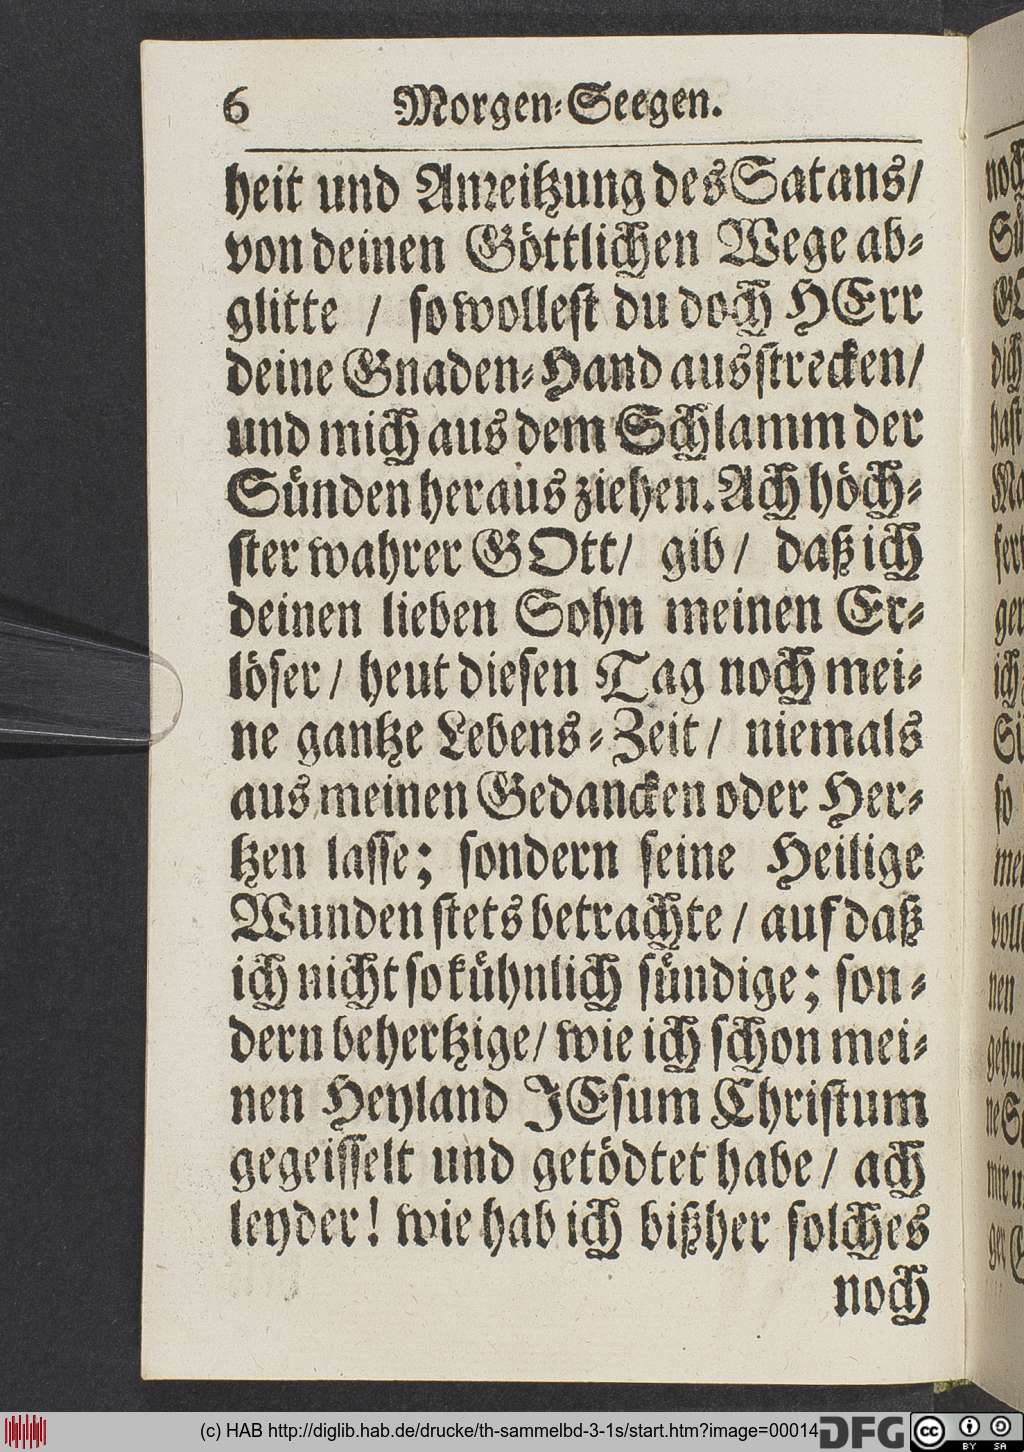 6 Morgen-Seegen.
heit und Anreitzung des Satans/
von deinen Göttlichen Wege ab-
glitte / so wollest du doch HErr
deine Gnaden-Hand ausstrecken/
und mich aus dem Schlamm der
Sünden heraus ziehen. Ach höch-
ster wahrer GOtt/ gib/ daß ich
deinen lieben Sohn meinen Er-
löser/ heut diesen Tag noch mei-
ne gantze Lebens-Zeit/ niemals
aus meinen Gedancken oder Her-
tzen lasse; sondern seine Heilige
Wunden stets betrachte/ auf daß
ich nicht so kühnlich sündige; son-
dern behertzige/ wie ich schon mei-
nen Heyland JEsum Christum
gegeisselt und getödtet habe/ ach
leyder! wie hab ich bißher solches
noch
(c) HAB http://diglib.hab.de/drucke/th-sammelbd-3-1s/start.htm?image=00014
DFG cc BY SA